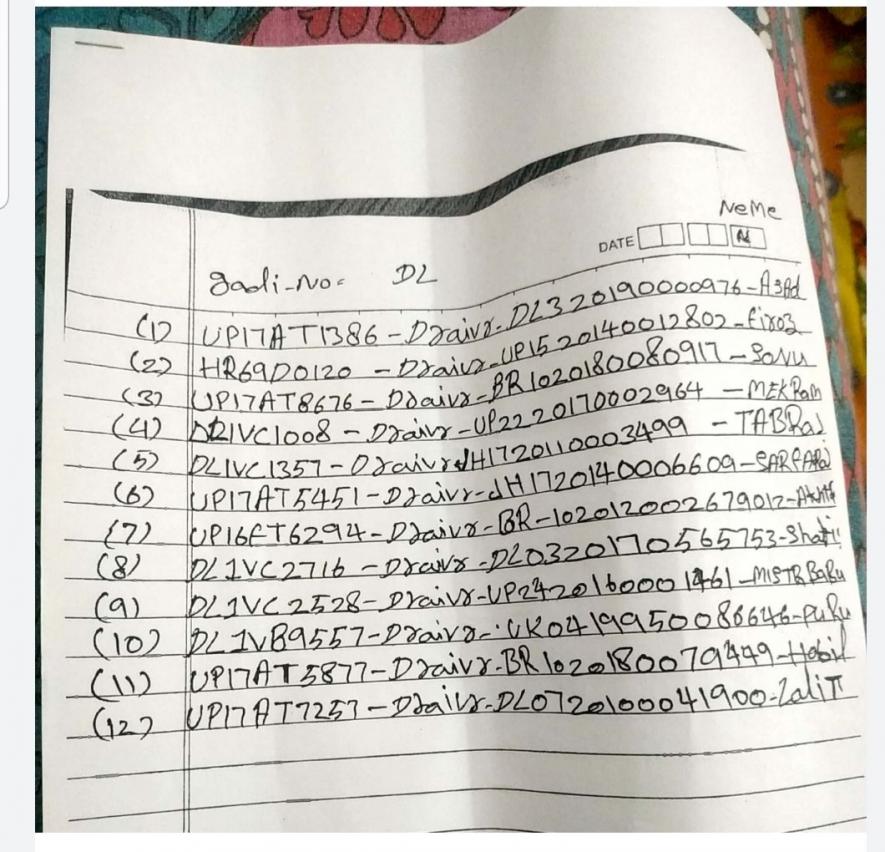 NeMe
DATE
gadi-No= DL
(1) UP17AT1386-Draivr-DL320190000976-ASAd
(2) HR69D0120 - Draivr-UP1520140012802-firoz
(3) UP17AT8676-Draivr-BR1020180080917-Sonu
(4) DL1VC1008-Draivr-UP2220170002964 - MEKRam
(5) DL1VC1357-Draivr JH1720110003499 - TABRaJ
(6) UP17AT5451-Draivr-JH1720140006609-SARFARaJ
(7) UP16FT6294-Draivr-BR-102012002679012-
(8) DL1VC2716-Draivr-DL0320170565753-
(9) DL1VC2528-Draivr-UP2420160001461-MISTR BaBu
(10) DL1VB9557-Draivr-UK0419950086646-PuRu
(11) UP17AT5877-Draivr-BR1020180079449-Habil
(12) UP17AT7257-Draivr-DL0720100041900-